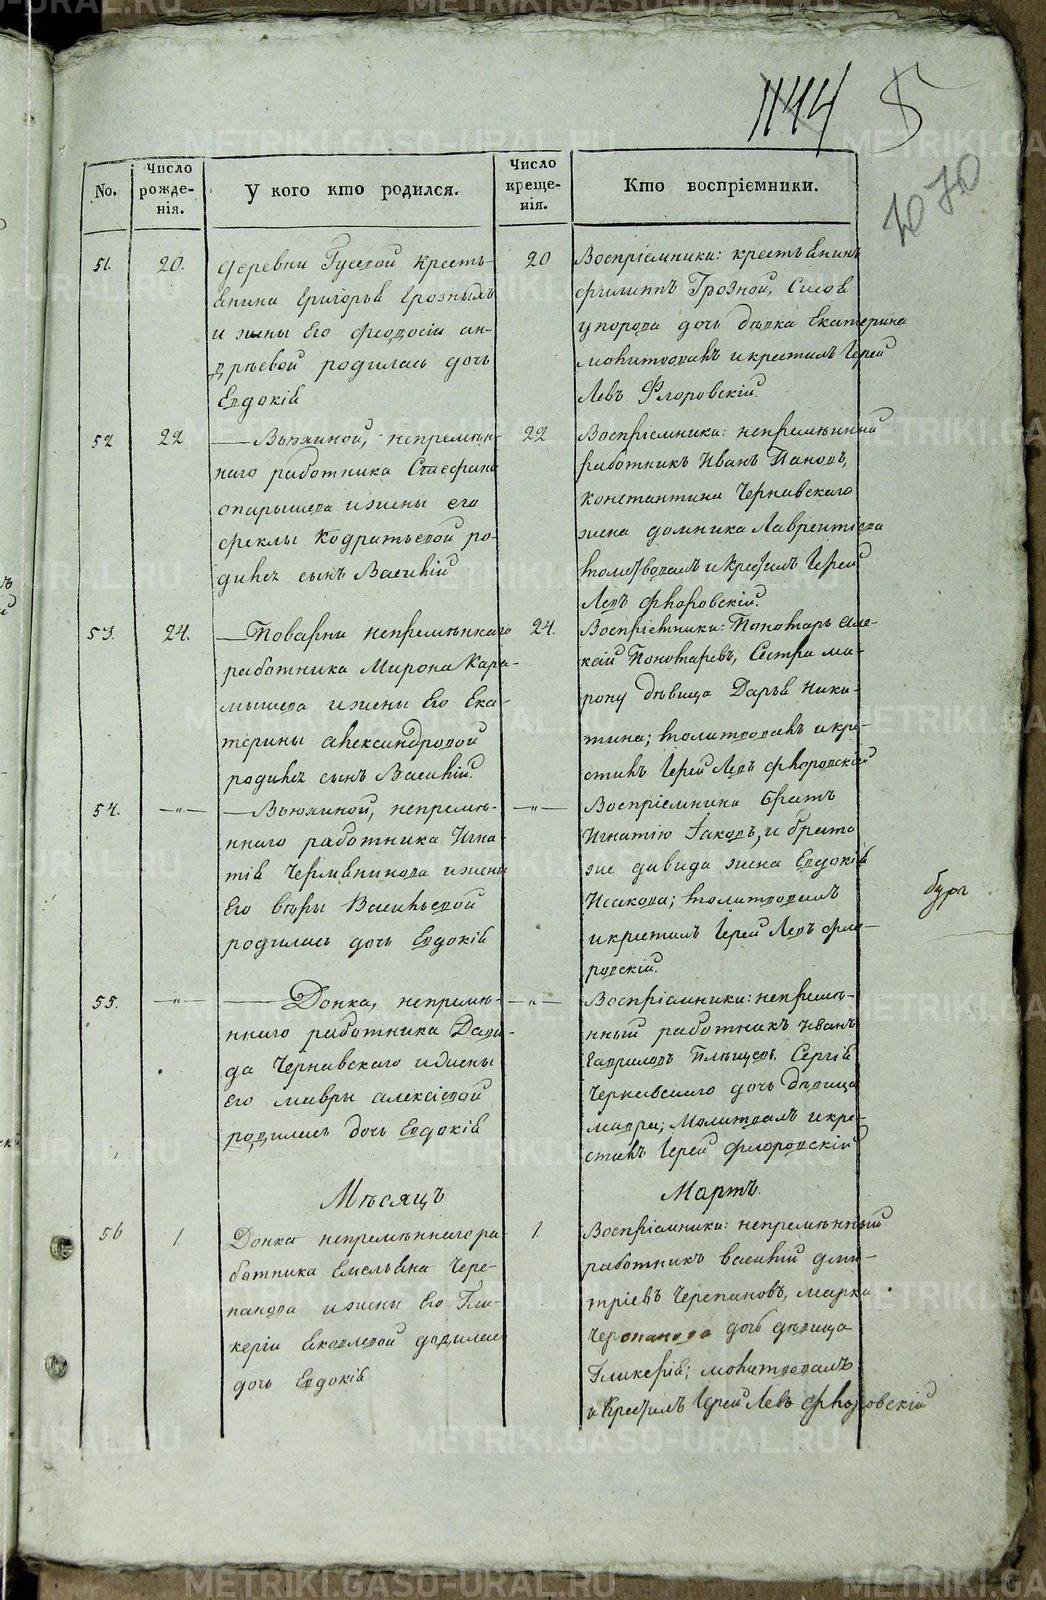 1144
5
70 70
No.
Число рожде-нія.
У кого кто родился.
Число креще-нія.
Кто воспріемники.
51.
20.
деревни Гусевой кресть-
янина Григорья Грозныхъ
и жены Его Феодосіи ан-
дрѣевой родилась дочь
Евдокія
20
Воспріемники: крестьянинъ
филиппъ Грозной, Сисоя
упорова дочь дѣвка Екатерина
молитвовалъ и крестилъ Іерей
Левъ Флоровскій.
52
22
—— Вьюхиной, непремѣн-
наго работника Стефана
опарышева и жены его
феклы Кодратьевой ро-
дился сынъ Василій
22
Воспріемники: непремѣнный
работникъ Иванъ Пановъ,
константина Чернавскаго
жена домника Лаврентіева
молитвовалъ и крестилъ Іерей
Левъ флоровскій.
53.
24.
—— Поварни непремѣннаго
работника Мирона Кара-
мышева и жены Его Ека-
терины александровой
родился сынъ Василій.
24.
Воспріемники: Пономарь але-
ксій Пономаревъ, Сестра ми-
рону дѣвица Дарья Ники-
тина; молитвовалъ и кре-
стилъ Іерей Левъ флоровскій
54.
—"—
—— Вьюхиной, непремѣ-
ннаго работника Игна-
тія Чермянинова и жены
Его вѣры Васильевой
родилась дочь Евдокія
—"—
Воспріемники братъ
Игнатію Іаковъ, и брата
же давида жена Евдокія
Исакова; молитвовалъ
и крестилъ Іерей Левъ фло-
ровскій.
55.
—"—
—— Донка, непремѣ-
ннаго работника Дави-
да Чернавскаго и жены
его мавры алексіевой
родилась дочь Евдокія
—"—
Воспріемники: непремѣ-
нный работникъ Иванъ
Гавриловъ Плѣщевъ, Сергія
Чернавскаго дочь дѣвица
мавра; Молитвовалъ и кре-
стилъ Іерей флоровскій
Мѣсяцъ
Мартъ.
56
1
Донка непремѣннаго ра-
ботника Емельяна Чере-
панова и жены Его Гли-
керіи яковлевой родилась
дочь Евдокія
1.
Воспріемники: непремѣнный
работникъ василій дми-
тріевъ Черепановъ, марка
Черепанова дочь дѣвица
Гликерія; молитвовалъ
и крестилъ Іерей Левъ флоровскій
METRIKI.GASO-URAL.RU